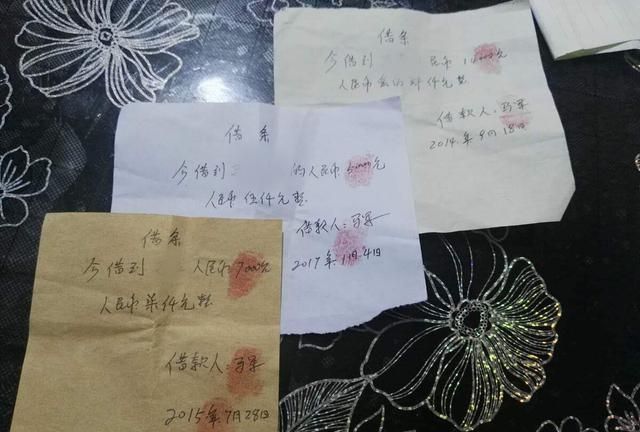 借条
今借到 人民币 元
人民币 仟元整
借款人:马军
2014年9月18日
借条
今借到 的人民币5000元
人民币伍仟元整
借款人:马军
2017年1月4日
借条
今借到 人民币7000元
人民币柒仟元整
借款人:马军
2015年7月28日